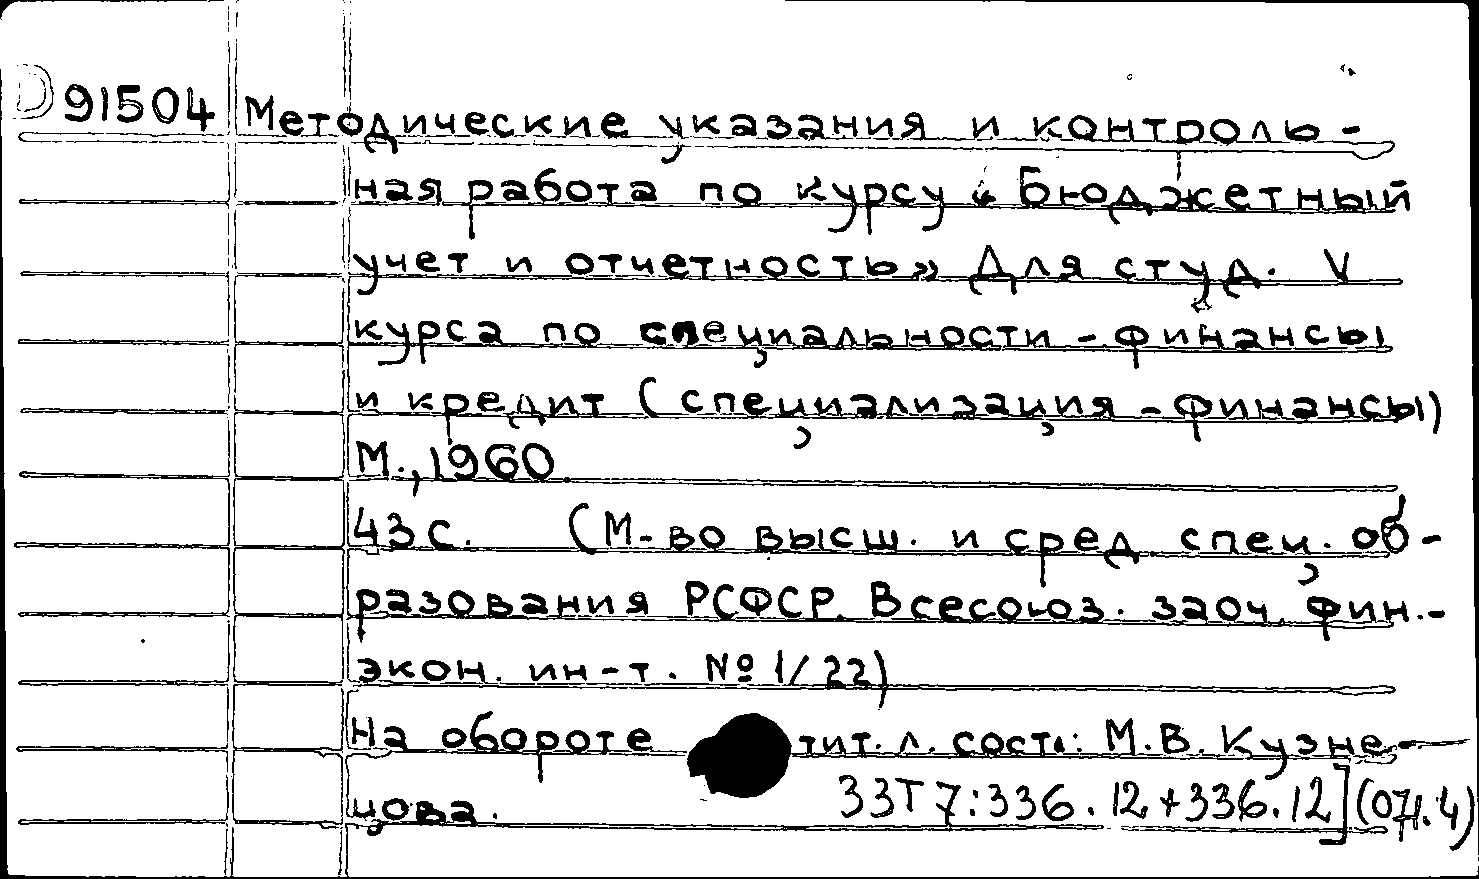 D91504 Методические указания и контроль-
ная работа по курсу «Бюджетный
учет и отчетность» Для студ. V
курса по специальности - финансы
и кредит (специализация - финансы)
М., 1960
43 с. (М-во высш. и сред. спец. об-
разования РСФСР. Всесоюз. заоч. фин.-
экон. ин-т. № 1/22)
На обороте тит. л. сост.: М.В. Кузне-
цова.
33Т7:336.12+336.12](071.4)